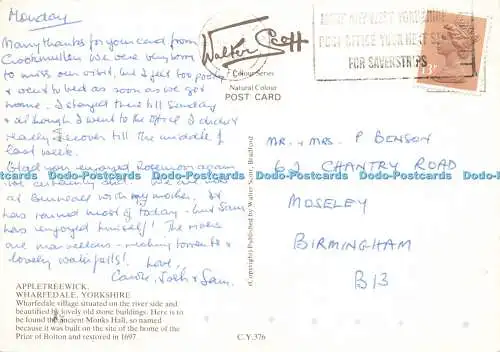 Monday
Many thanks for your card from
Crookmullen. We were very sorry
to miss our visit, but I felt too poorly
& went to bed as soon as we got
home. I stayed there till Sunday
& although I went to the office I didn't
really recover till the middle of
last week.
Glad you enjoyed Rosemoor again
we certainly did. We are now
at Burnsall with my mother. It
has rained most of today - but Sam
has enjoyed himself! The rivers
are marvellous - rushing torrents &
lovely waterfalls! Love,
Carole, Josh & Sam.
APPLETREEWICK,
WHARFEDALE, YORKSHIRE
Wharfedale village situated on the river side and
beautified by lovely old stone buildings. Here is to
be found the ancient Monks Hall, so named
because it was built on the site of the home of the
Prior of Bolton and restored in 1697.
Walter Scott
Colour Series
Natural Colour
POST CARD
(Copyright) Published by Walter Scott, Bradford
C.Y.376
POST OFFICE YOUR NEXT STOP
FOR SAVERSTRIPS
13P
MR. & MRS. P BENSON
62 CHANTRY ROAD
MOSELEY
BIRMINGHAM
B13
Dodo-Postcards Dodo-Postcards Dodo-Postcards Dodo-Postcards Dodo-Postcards